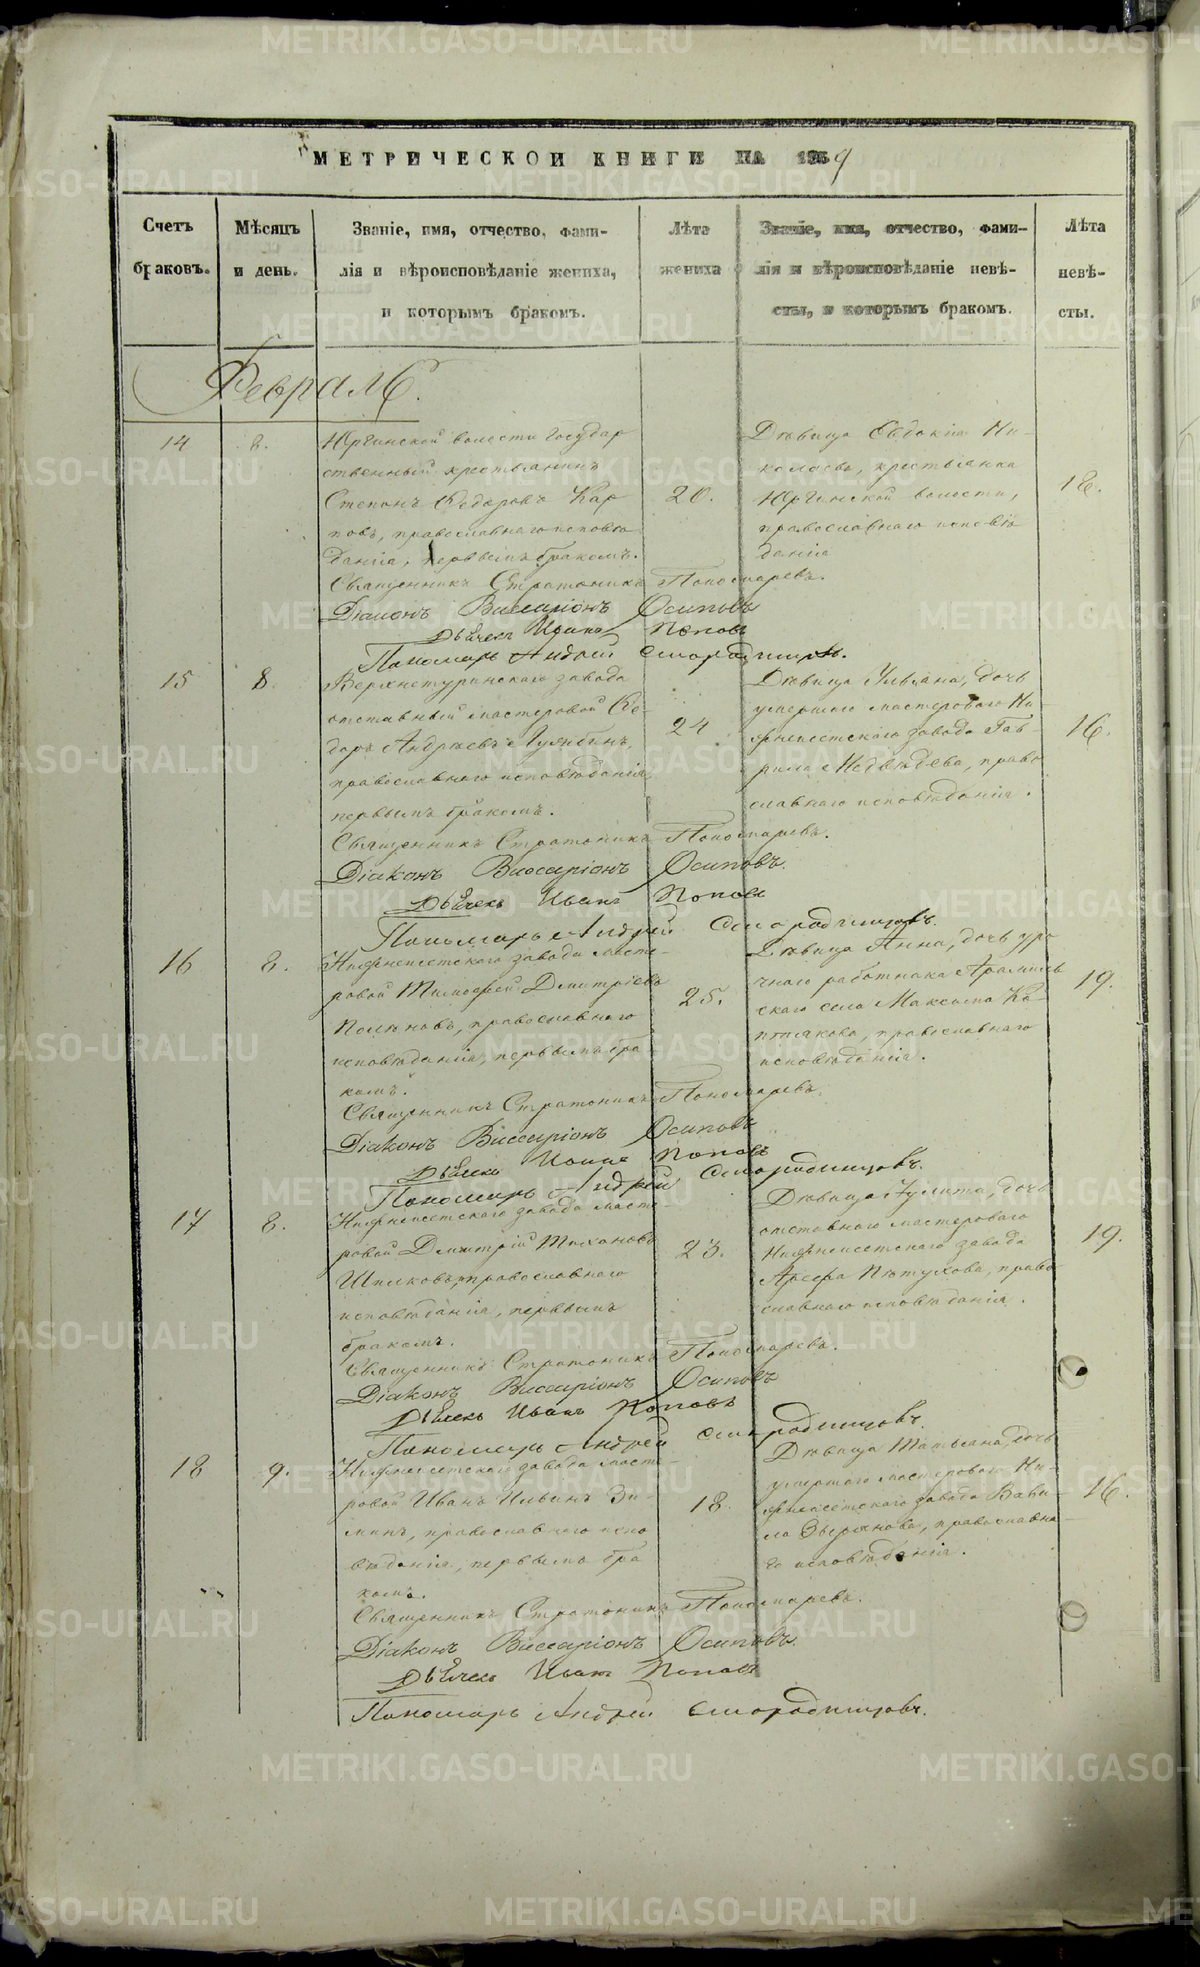 МЕТРИЧЕСКОЙ КНИГИ НА 1859
Счетъ браковъ.
Мѣсяцъ и день.
Званіе, имя, отчество, фами-
лія и вѣроисповѣданіе жениха,
и которымъ бракомъ.
Лѣта
жениха
Званіе, имя, отчество, фами-
лія и вѣроисповѣданіе невѣ-
сты, и которымъ бракомъ.
Лѣта
невѣ-
сты.
Февраль.
14
8.
Юргинской волости государ
ственный крестьянинъ
Степанъ Ѳедоровъ Кар
повъ, православнаго исповѣ
данія, первымъ бракомъ.
20.
Дѣвица Евдокія Ни-
колаева, крестьянка
Юргинской волости,
православнаго исповѣ
данія
18.
Священникъ Стратоникъ Пономаревъ.
Діаконъ Виссаріонъ Осиповъ
Дьячекъ Иванъ Поповъ
Пономарь Андрей Смородинцовъ.
15
8.
Верхнетуринскаго завода
отставный мастеровой Ѳе-
доръ Андреевъ
православнаго исповѣданія
первымъ бракомъ.
24
Дѣвица Ульяна, дочь
умершаго мастероваго Ни-
жнеисетскаго завода Гав
рила Медвѣдева, право
славнаго исповѣданія.
16.
Священникъ Стратоникъ Пономаревъ.
Діаконъ Виссаріонъ Осиповъ.
Дьячекъ Иванъ Поповъ
Пономарь Андрей Смородинцовъ.
16
8.
Нижнеисетскаго завода масте-
ровой Тимофей Дмитріевъ
Полѣновъ, православнаго
исповѣданія, первымъ бра
комъ.
25.
Дѣвица Анна, дочь уро
чнаго работника Арамиль
скаго села Максима Ко-
птякова, православнаго
исповѣданія.
19.
Священникъ Стратоникъ Пономаревъ.
Діаконъ Виссаріонъ Осиповъ
Дьячекъ Иванъ Поповъ
Пономарь Андрей Смородинцовъ.
17
8.
Нижнеисетскаго завода масте-
ровой Дмитрій Тихоновъ
православнаго
исповѣданія, первымъ
бракомъ.
23.
Дѣвица Улита, дочь
отставнаго мастероваго
Нижнеисетскаго завода
Арефа Пѣтухова, право
славнаго исповѣданія.
19.
Священникъ Стратоникъ Пономаревъ.
Діаконъ Виссаріонъ Осиповъ
Дьячекъ Иванъ Поповъ
Пономарь Андрей Смородинцовъ.
18
9.
Нижнеисетскаго завода масте-
ровой Иванъ Ильинъ Зи-
минъ, православнаго испо
вѣданія, первымъ бра
комъ.
18.
Дѣвица Татьяна, дочь
умершаго мастероваго Ни-
жнеисетскаго завода Вави-
ла Звѣрянова, православна-
го исповѣданія.
16.
Священникъ Стратоникъ Пономаревъ.
Діаконъ Виссаріонъ Осиповъ.
Дьячекъ Иванъ Поповъ
Пономарь Андрей Смородинцовъ.
METRIKI.GASO-URAL.RU